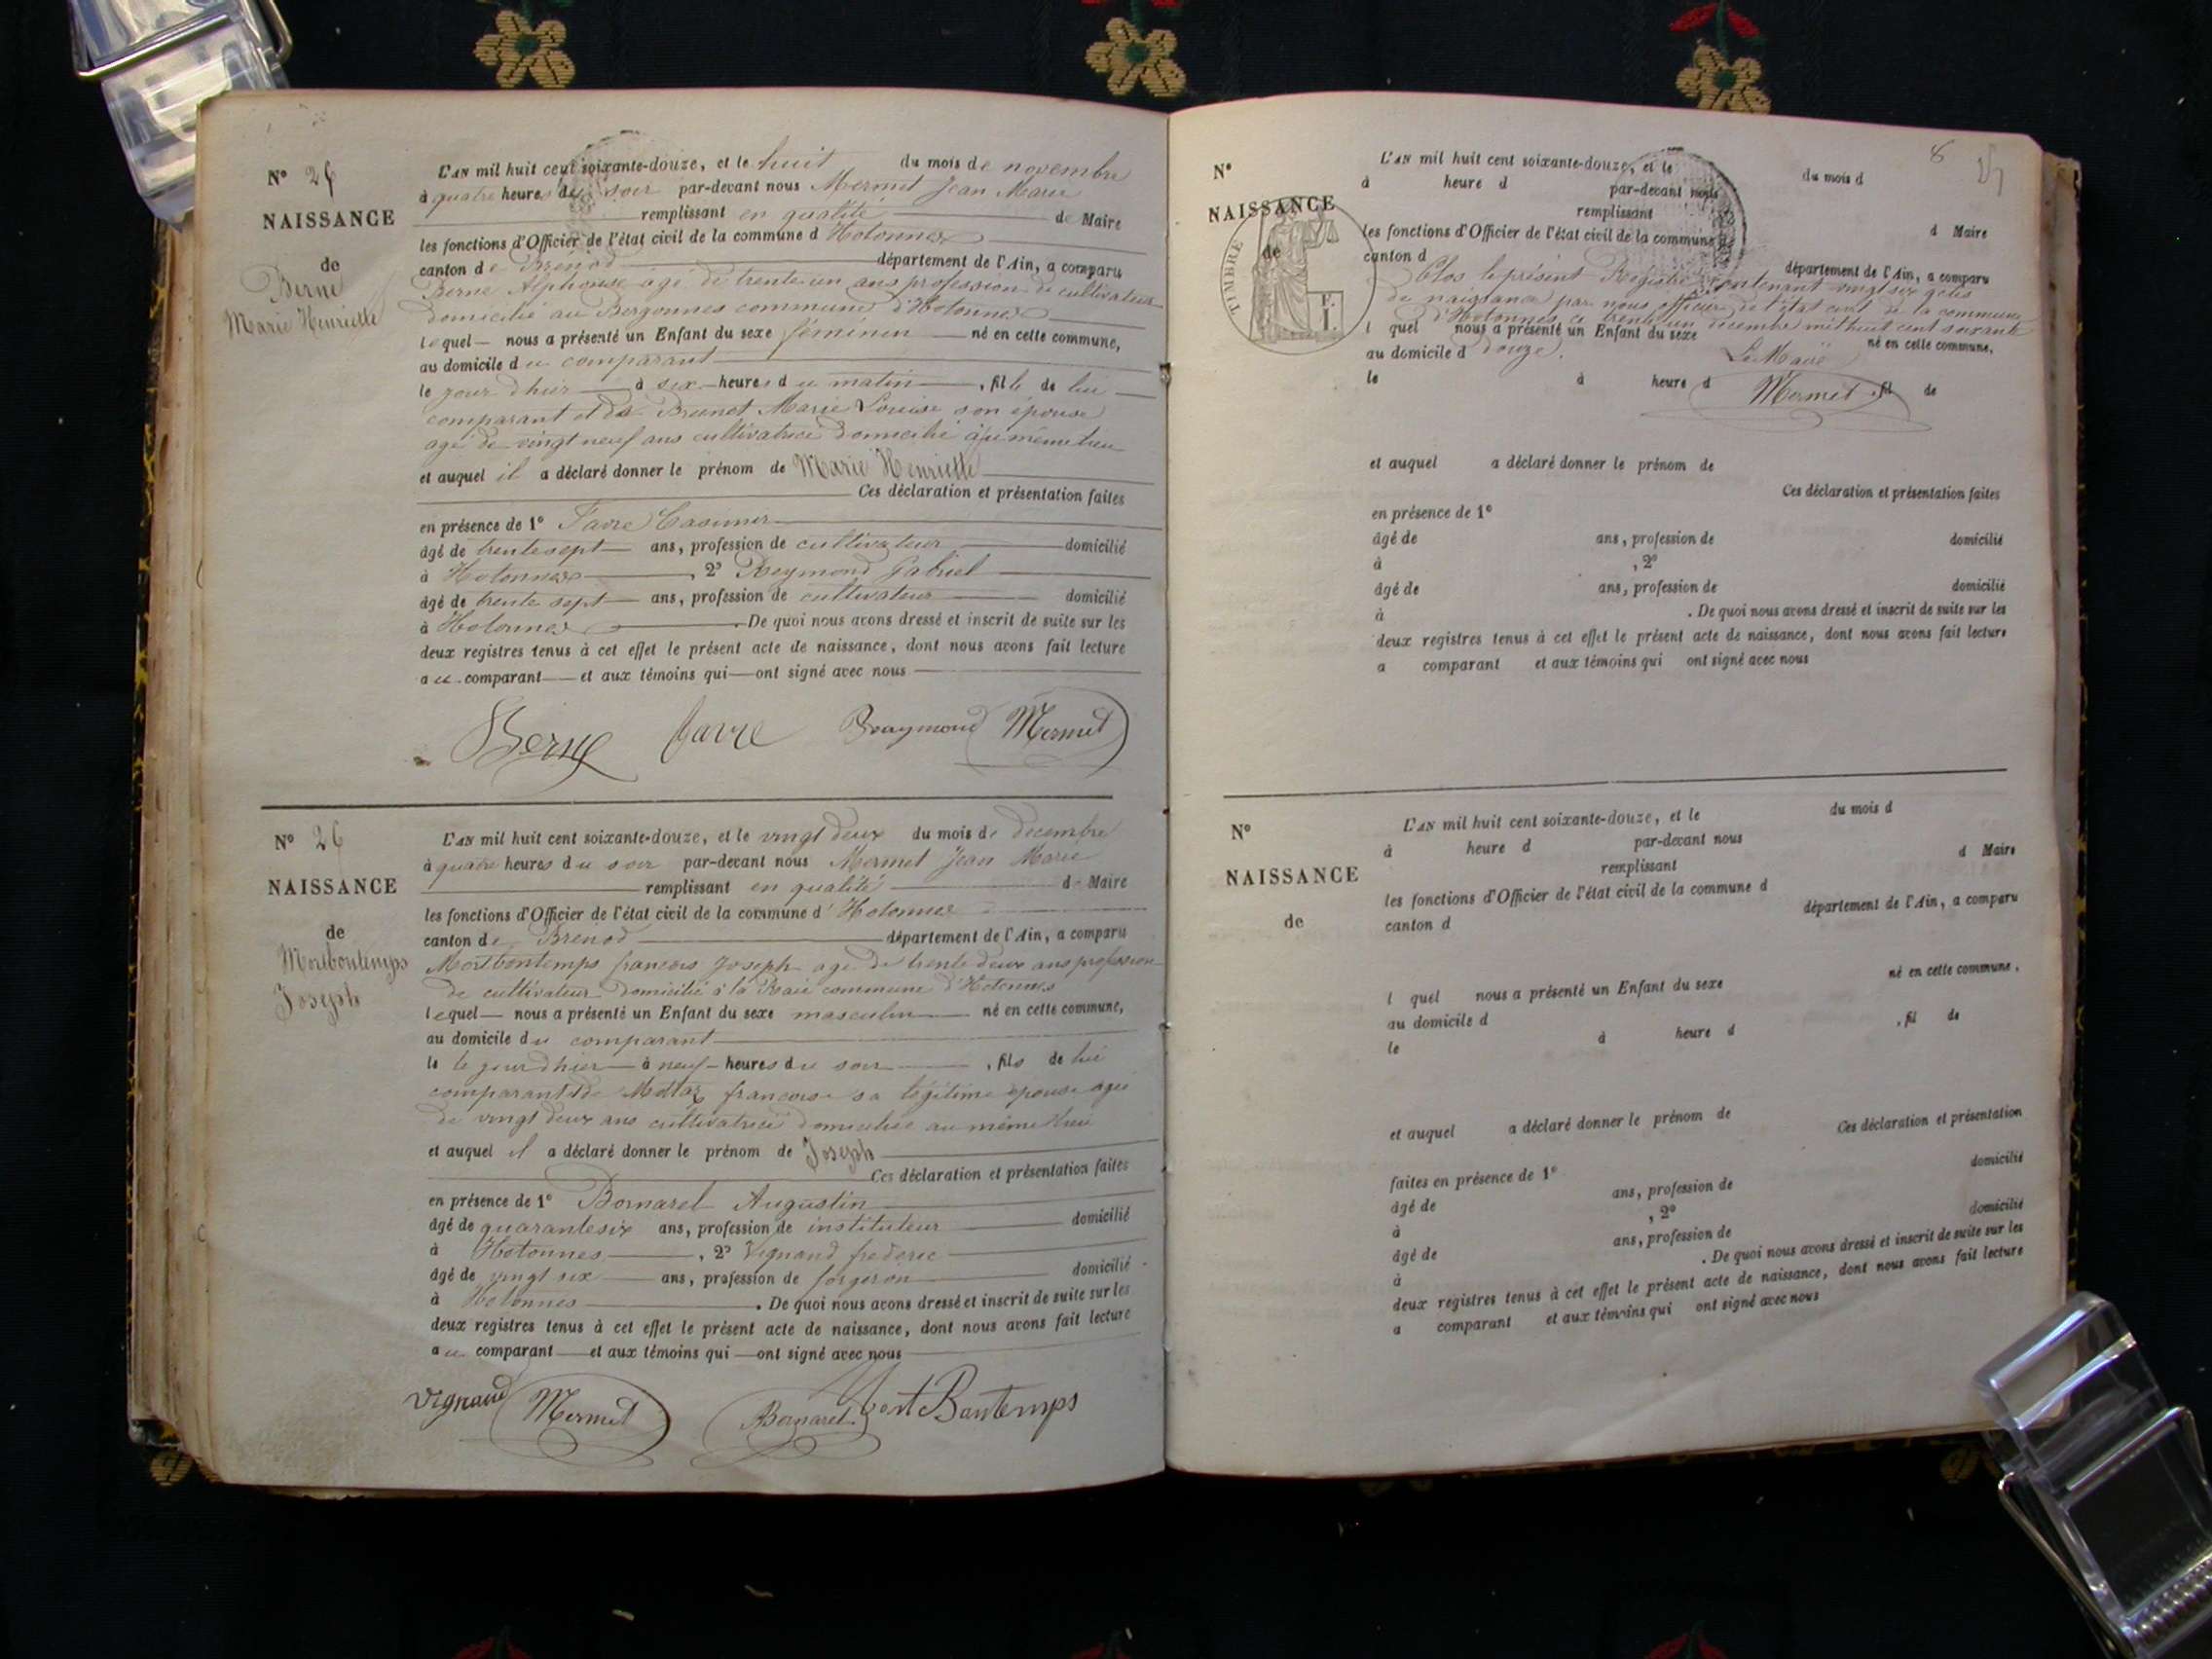 N° 25
NAISSANCE
de
Berne
Marie Henriette
L'AN mil huit cent soixante-douze, et le huit du mois de novembre
à quatre heures du soir par-devant nous Mermet Jean Marie
remplissant en qualité de Maire
les fonctions d'Officier de l'état civil de la commune d Hotonnes
canton de Brénod département de l'Ain, a comparu
Berne Alphonse agé de trente un ans profession de cultivateur
domicilié au Bergonnes commune d'Hotonnes
lequel nous a présenté un Enfant du sexe féminin né en cette commune,
au domicile du comparant
le jour d'hier à six heures du matin, fille de lui
comparant et de Brunet Marie Louise son épouse
agé de vingt neuf ans cultivatrice domicilié au même lieu
et auquel il a déclaré donner le prénom de Marie Henriette
Ces déclaration et présentation faites
en présence de 1° Favre Casimir
âgé de trente sept ans, profession de cultivateur domicilié
à Hotonnes, 2° Reymond Gabriel
âgé de trente sept ans, profession de cultivateur domicilié
à Hotonnes. De quoi nous avons dressé et inscrit de suite sur les
deux registres tenus à cet effet le présent acte de naissance, dont nous avons fait lecture
au comparant et aux témoins qui ont signé avec nous
Berne favre Raymond Mermet
N° 26
NAISSANCE
de
Mortbontemps
Joseph
L'AN mil huit cent soixante-douze, et le vingt deux du mois de décembre
à quatre heures du soir par-devant nous Mermet Jean Marie
remplissant en qualité de Maire
les fonctions d'Officier de l'état civil de la commune d'Hotonnes
canton de Brénod département de l'Ain, a comparu
Mortbontemps françois Joseph agé de trente deux ans profession
de cultivateur domicilié à la Raie commune d'Hotonnes
lequel nous a présenté un Enfant du sexe masculin né en cette commune,
au domicile du comparant
le le jour d'hier à neuf heures du soir, fils de lui
comparant et de Mollaz françoise sa légitime épouse agée
de vingt deux ans cultivatrice domiciliée au même lieu
et auquel il a déclaré donner le prénom de Joseph
Ces déclaration et présentation faites
en présence de 1° Bornarel Augustin
âgé de quarante six ans, profession de instituteur domicilié
à Hotonnes, 2° Vignand frédéric
âgé de vingt six ans, profession de forgeron domicilié
à Hotonnes. De quoi nous avons dressé et inscrit de suite sur les
deux registres tenus à cet effet le présent acte de naissance, dont nous avons fait lecture
au comparant et aux témoins qui ont signé avec nous
Vignand Mermet Bornarel Mort Bontemps
8
N°
NAISSANCE
de
TIMBRE
L'AN mil huit cent soixante-douze, et le du mois d
à heure d par-devant nous
remplissant d Maire
les fonctions d'Officier de l'état civil de la commune d
canton d département de l'Ain, a comparu
Clos le présent Registre contenant vingt six actes
de naissance par nous officier de l'état civil de la commune
d'Hotonnes ce trente un décembre mil huit cent soixante
l quel nous a présenté un Enfant du sexe né en cette commune,
au domicile d douze.
Le Maire
le à heure d Mermet, fil de
et auquel a déclaré donner le prénom de
Ces déclaration et présentation faites
en présence de 1°
âgé de ans, profession de domicilié
à , 2°
âgé de ans, profession de domicilié
à . De quoi nous avons dressé et inscrit de suite sur les
deux registres tenus à cet effet le présent acte de naissance, dont nous avons fait lecture
a comparant et aux témoins qui ont signé avec nous
N°
NAISSANCE
de
L'AN mil huit cent soixante-douze, et le du mois d
à heure d par-devant nous
remplissant d Maire
les fonctions d'Officier de l'état civil de la commune d
canton d département de l'Ain, a comparu
l quel nous a présenté un Enfant du sexe né en cette commune,
au domicile d
le à heure d , fil de
et auquel a déclaré donner le prénom de
Ces déclaration et présentation
faites en présence de 1°
âgé de ans, profession de domicilié
à , 2°
âgé de ans, profession de domicilié
à . De quoi nous avons dressé et inscrit de suite sur les
deux registres tenus à cet effet le présent acte de naissance, dont nous avons fait lecture
a comparant et aux témoins qui ont signé avec nous